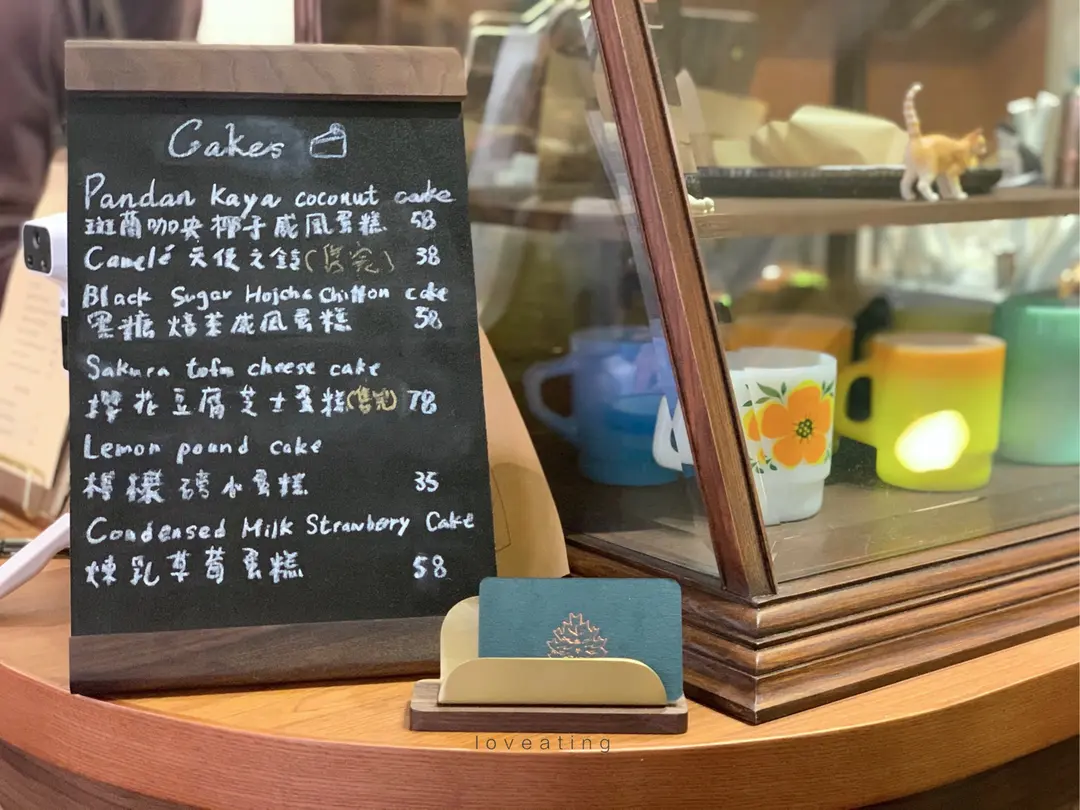 Cakes
Pandan Kaya coconut cake
斑蘭咖央椰子戚風蛋糕 58
Canelé 天使之鈴(售完) 38
Black Sugar Hojicha Chiffon cake
黑糖焙茶戚風蛋糕 58
Sakura tofu cheese cake
櫻花豆腐芝士蛋糕(售完) 78
Lemon pound cake
檸檬磅水蛋糕 35
Condensed Milk Strawberry Cake
煉乳草莓蛋糕 58
loveating